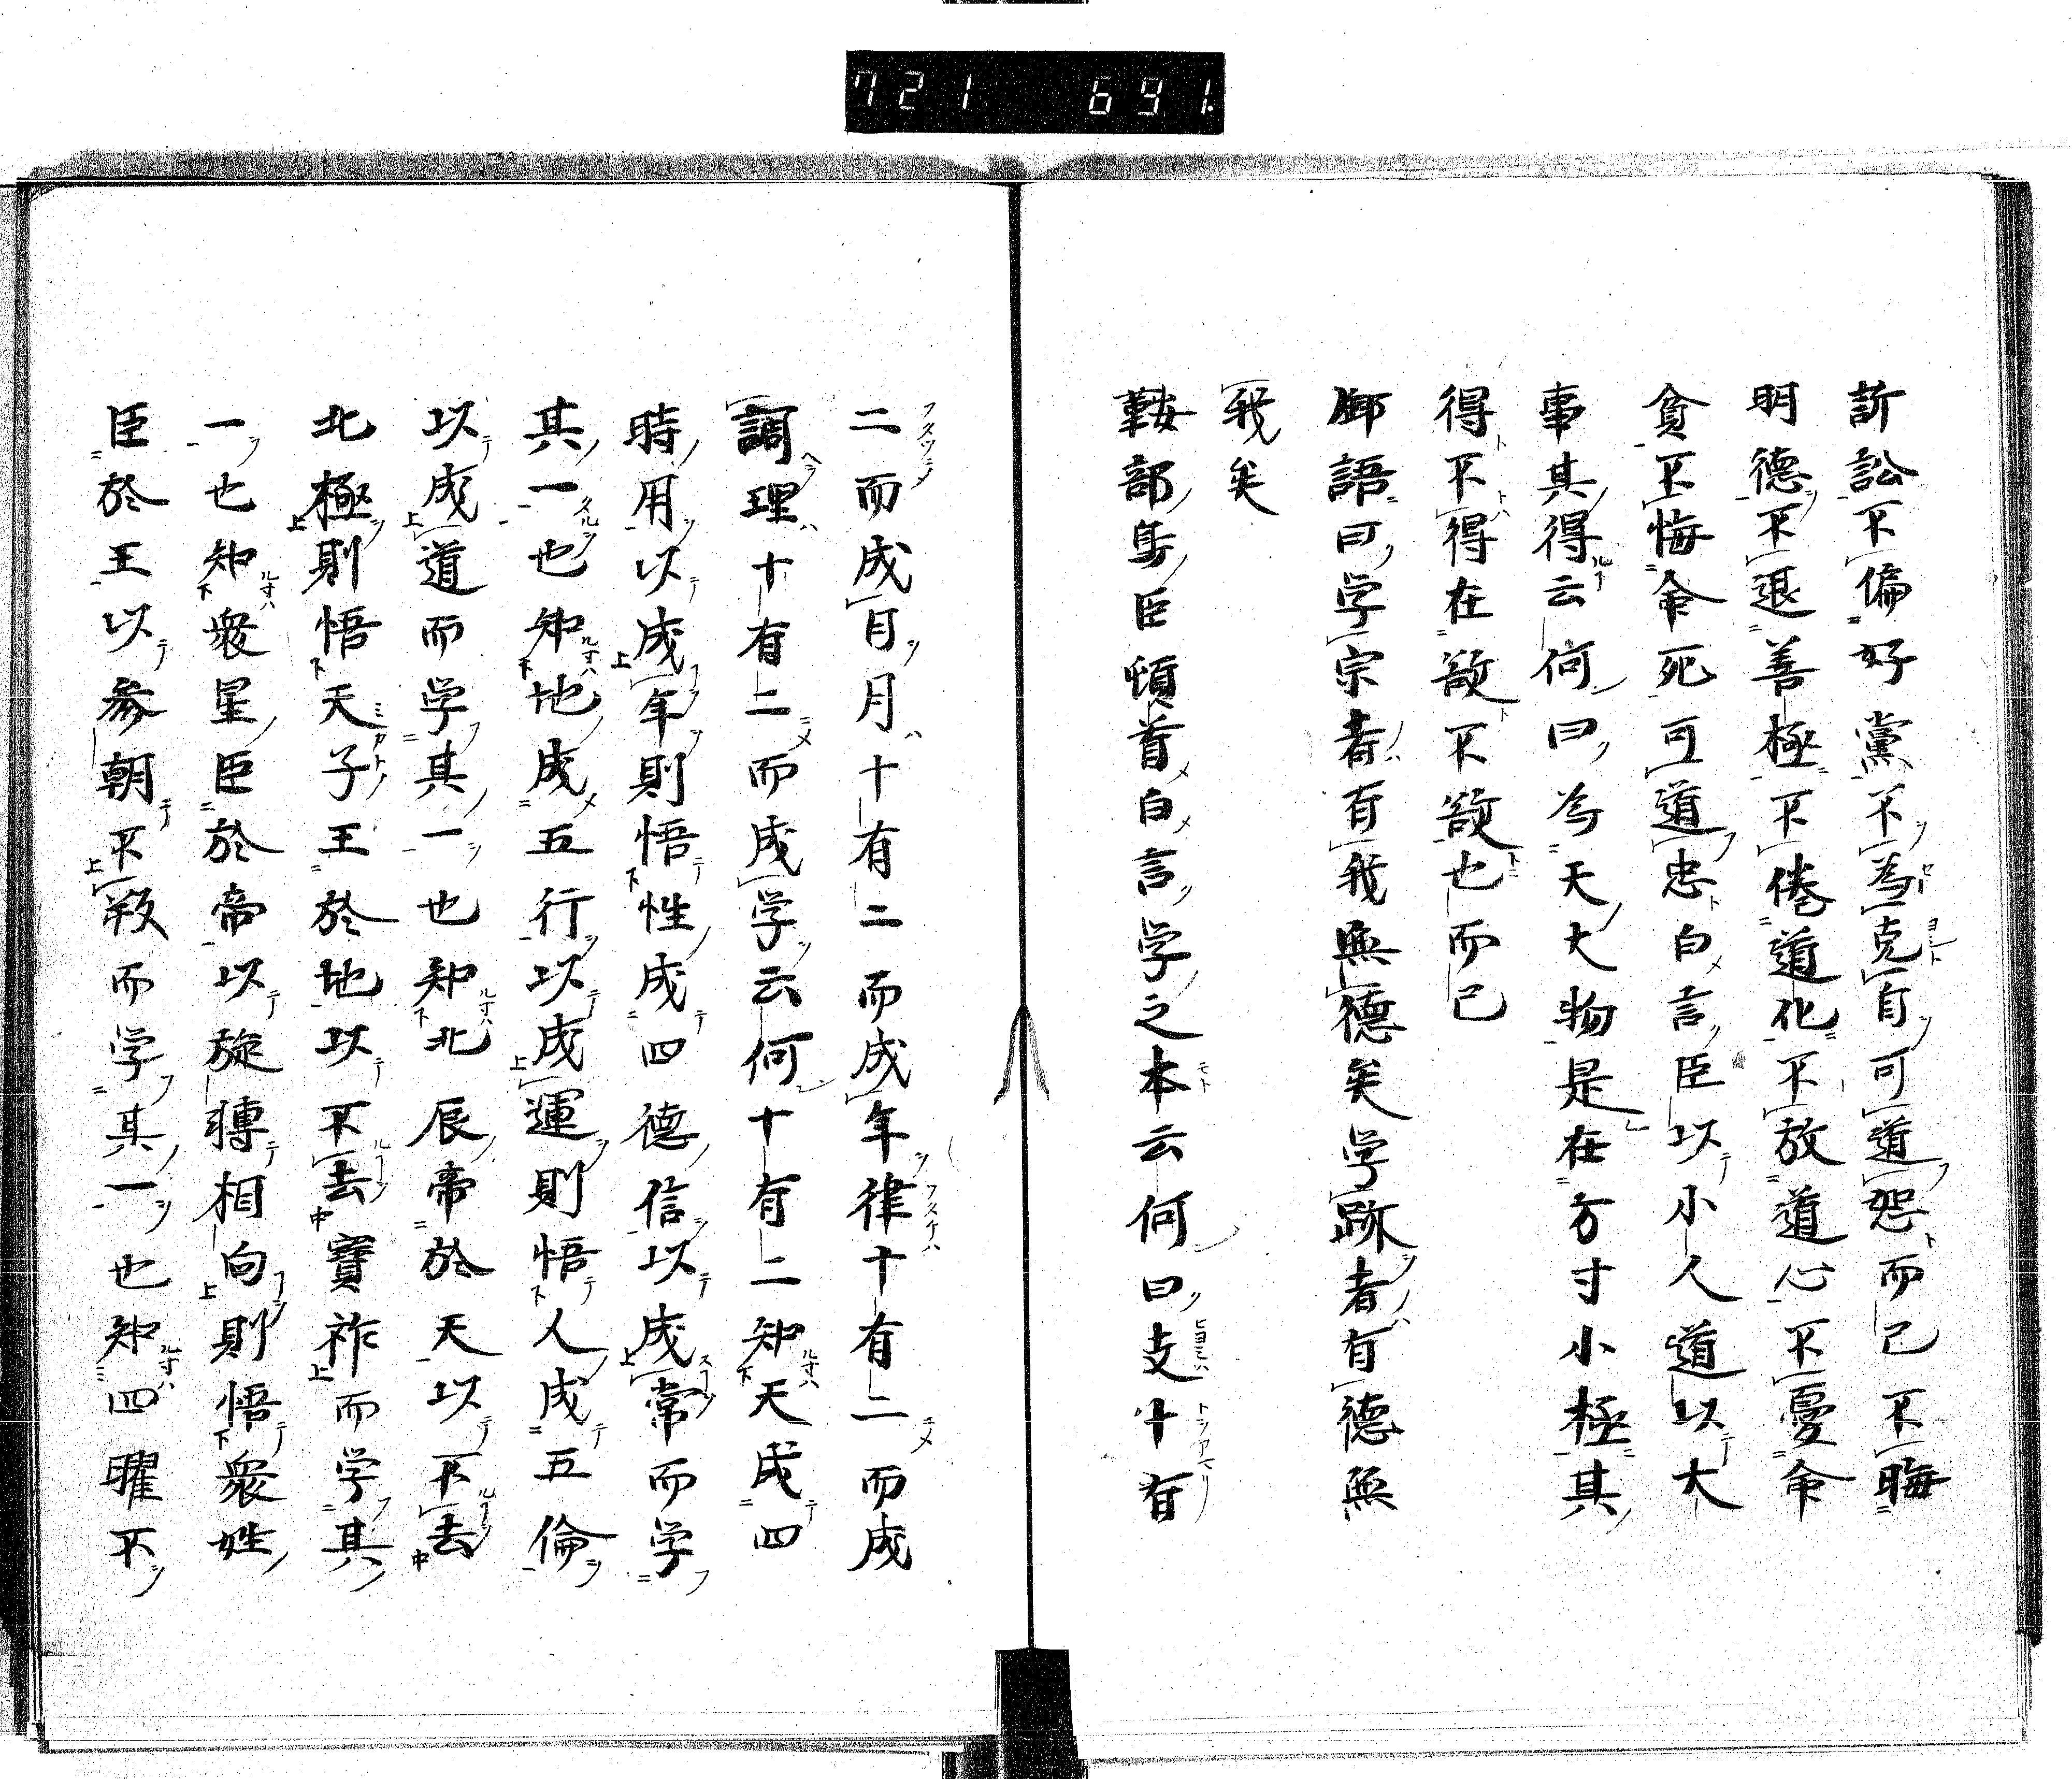 721 691
訴訟不偏好黨不為克自可道怨而已不晦
明德不退善極不倦道化不放道心不憂命
貪不悔命死可道忠白言臣以小人道以大
事其得云何曰為天大物是在方寸小極其
得不得在欲不欲也而已
御語曰学宗者有我無德矣学跡者有德無
我矣
鞍部臣頓首白言学之本云何曰支十有
二而成日月十有二而成年律十有二而成
調理十有二而成学云何十有二知天成四
時用以成年則悟性成四德信以成常而学
其一也知地成五行以成運則悟人成五倫
以成道而学其一也知北辰帝於天以不去
北極則悟天子王於地以不去寶祚而学其
一也知衆星臣於帝以旋轉相向則悟衆姓
臣於王以参朝不叛而学其一也知四曜不